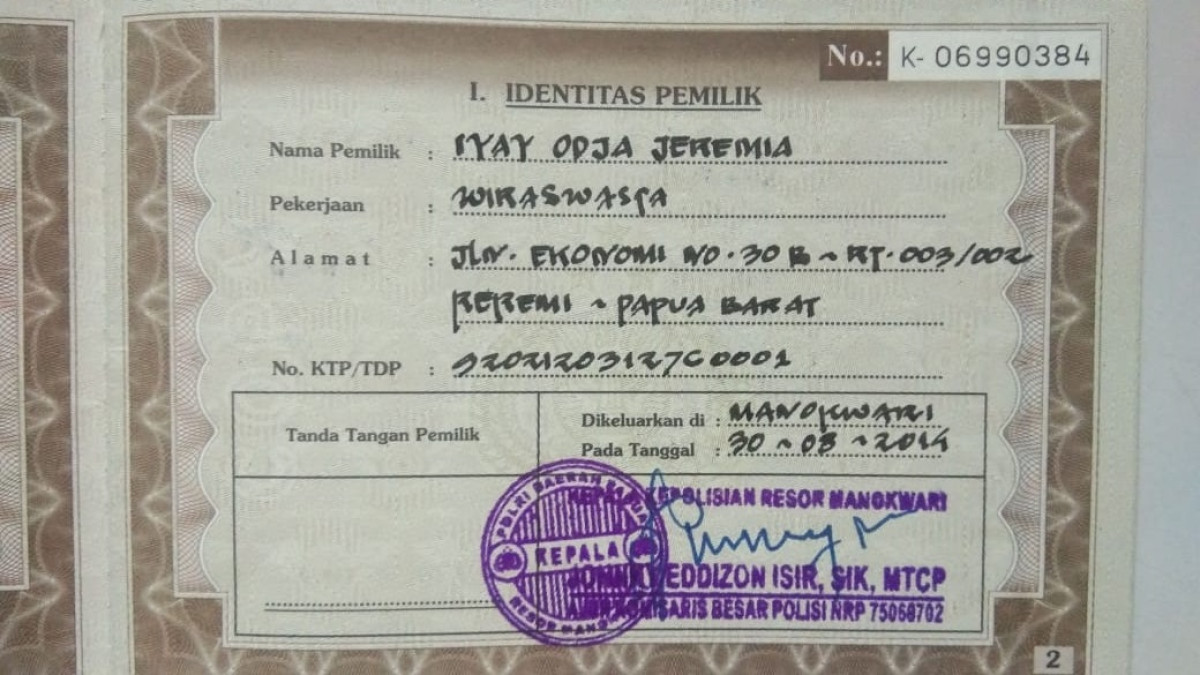 No.: K- 06990384
I. IDENTITAS PEMILIK
Nama Pemilik : IYAY ODJA JEREMIA
Pekerjaan : WIRASWASTA
Alamat : JLN. EKONOMI NO. 30 B ~ RT. 003/002
REREMI ~ PAPUA BARAT
No. KTP/TDP : 9202120312760001
Tanda Tangan Pemilik
Dikeluarkan di : MANOKWARI
Pada Tanggal : 30 ~ 08 ~ 2014
POLRI DAERAH PAPUA
KEPALA
RESOR
KEPALA KEPOLISIAN RESOR MANOKWARI
EDDIZON ISIR, SIK, MTCP
BESAR POLISI NRP 75060702
2